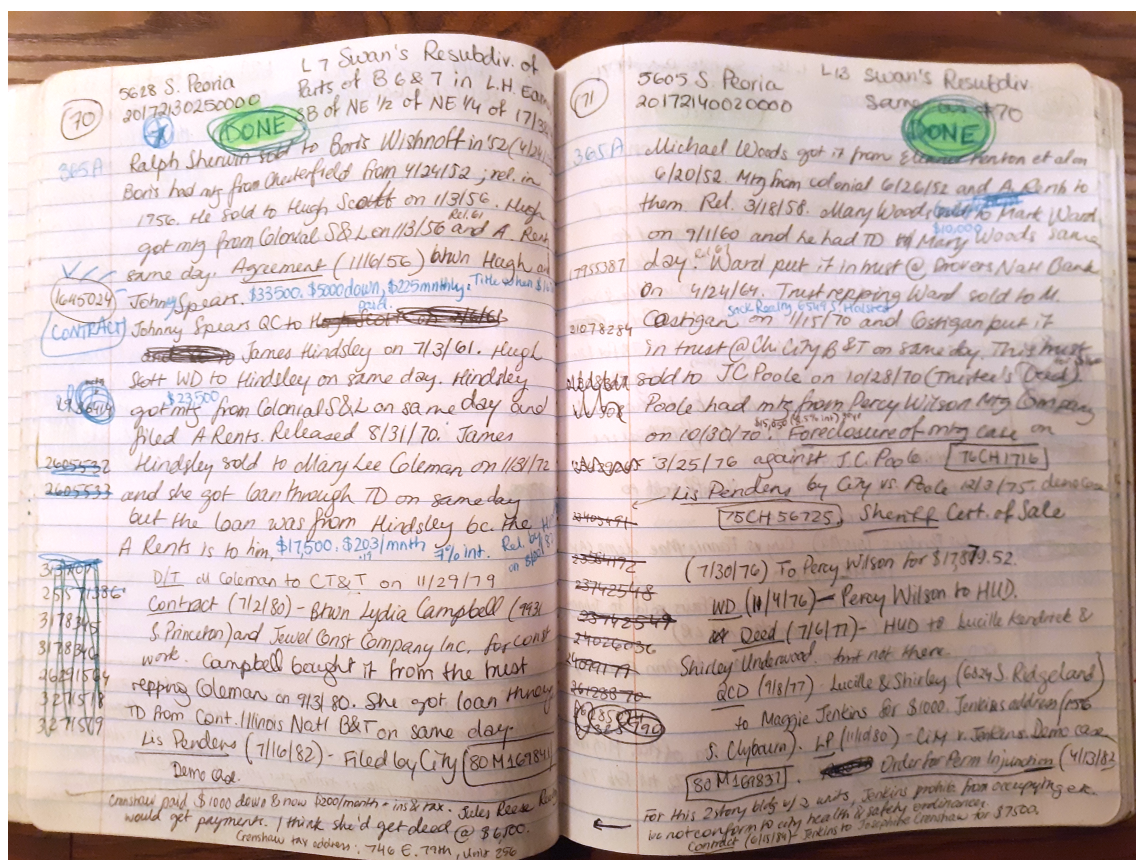 70
5628 S. Peoria
L 7 Swan's Resubdiv. of
20172130250000
Parts of B 6 & 7 in L.H.
DONE
SB of NE 1/2 of NE 1/4 of 17/38
365A
Ralph Sherwin sold to Boris Wishnoff in '52 (4/24/
Boris had mtg from Chesterfield from 4/24/52; rel. in
1756. He sold to Hugh Scott on 1/3/56. Hugh
Rel. 61
got mtg from Colonial S&L on 1/3/56 and A. Rents
same day. Agreement (11/16/56) btwn Hugh and
1645024
Johnny Spears. $33500. $5000 down, $225 mnthly. Title when
CONTRACT
Johnny Spears QC to
James Hindsley on 7/3/61. Hugh
Scott WD to Hindsley on same day. Hindsley
$23,500
got mtg from Colonial S&L on same day and
filed A Rents. Released 8/31/70. James
2605532
Hindsley sold to Mary Lee Coleman on 1/31/72
2605533
and she got loan through TD on same day
but the loan was from Hindsley bc. the
A Rents is to him, $17,500. $203/mnth 7% int. Rel. by
.19
D/T M Coleman to CT&T on 11/29/79
Contract (7/2/80) - Btwn Lydia Campbell (9931
S. Princeton) and Jewel Const Company Inc. for const
work. Campbell bought it from the trust
repping Coleman on 9/3/80. She got loan through
TD from Cont. Illinois Natl B&T on same day.
Lis Pendens (7/16/82) - Filed by City 80 M169841
Demo case.
Crenshaw paid $1000 down & now $200/month + ins & tax. Jules Reese
would get payments. I think she'd get deed @ $6,500.
Crenshaw tax address: 746 E. 79th, Unit 256
71
5605 S. Peoria
L 13 Swan's Resubdiv.
20172140020000
Same as #70
DONE
365A
Michael Woods got it from Eleanor Fenton et al on
6/20/52. Mtg from colonial 6/26/52 and A. Rents to
them Rel. 3/18/58. Mary Woods sold to Mark Ward
$10,000
on 9/1/60 and he had TD to Mary Woods same
17955387
day. Ward put it in trust @ Drovers Natl Bank
on 4/24/64. Trust repping Ward sold to M.
Sack Realty 6549 S. Halsted
21078284
Costigan on 1/15/70 and Costigan put it
in trust @ Chi City B & T on same day. This trust
sold to JC Poole on 10/28/70 (Trustee's Deed).
Poole had mtg from Percy Wilson Mtg Company
on 10/30/70. Foreclosure of mtg case on
3/25/76 against J.C. Poole 76CH1716
Lis Pendens by City vs. Poole 12/3/75. demo case
75CH 56725, Sheriff Cert. of Sale
(7/30/76) To Percy Wilson for $17,879.52.
23742548
WD (11/4/76) - Percy Wilson to HUD.
23742549
Deed (7/6/77) - HUD to Lucille Kendrick &
24026036
Shirley Underwood. but not there.
QCD (9/8/77). Lucille & Shirley (6824 S. Ridgeland)
to Maggie Jenkins for $1000. Jenkins address (1356
S. Clybourn). LP (11/10/80) - City v. Jenkins. Demo case
80 M169837
Order for Perm Injunction (4/13/82
For this 2 story bldg w/ 2 units, Jenkins prohib. from occupying etc.
bc not conform to city health & safety ordinances.
Contract (6/15/84) - Jenkins to Josephine Crenshaw for $7500.